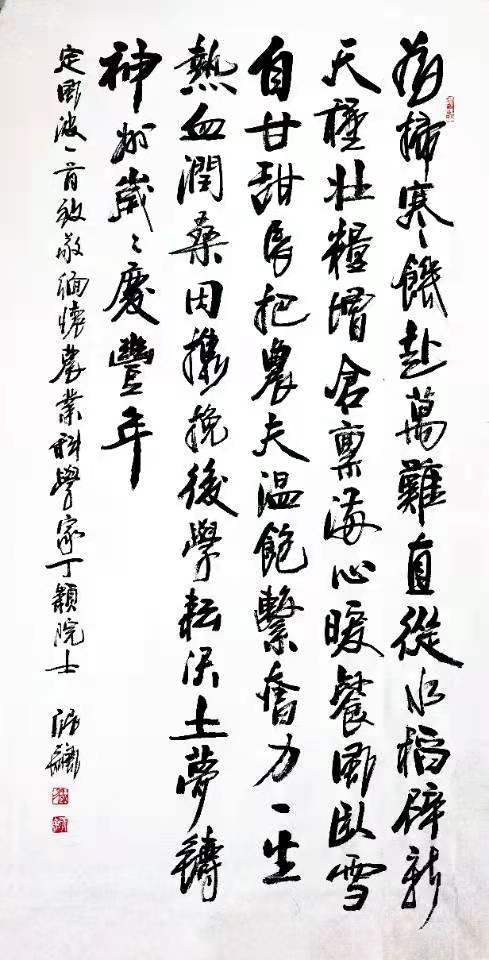 為掃寒饑赴萬難直從水稻辟新
天種壯糧增倉稟滿心暖餐風臥雪
自甘甜長把農夫溫飽繫奮力一生
熱血潤桑田攜挽後學耘沃土夢鑄
神州歲〻慶豐年
定風波一首致敬緬懷農業科學家丁穎院士